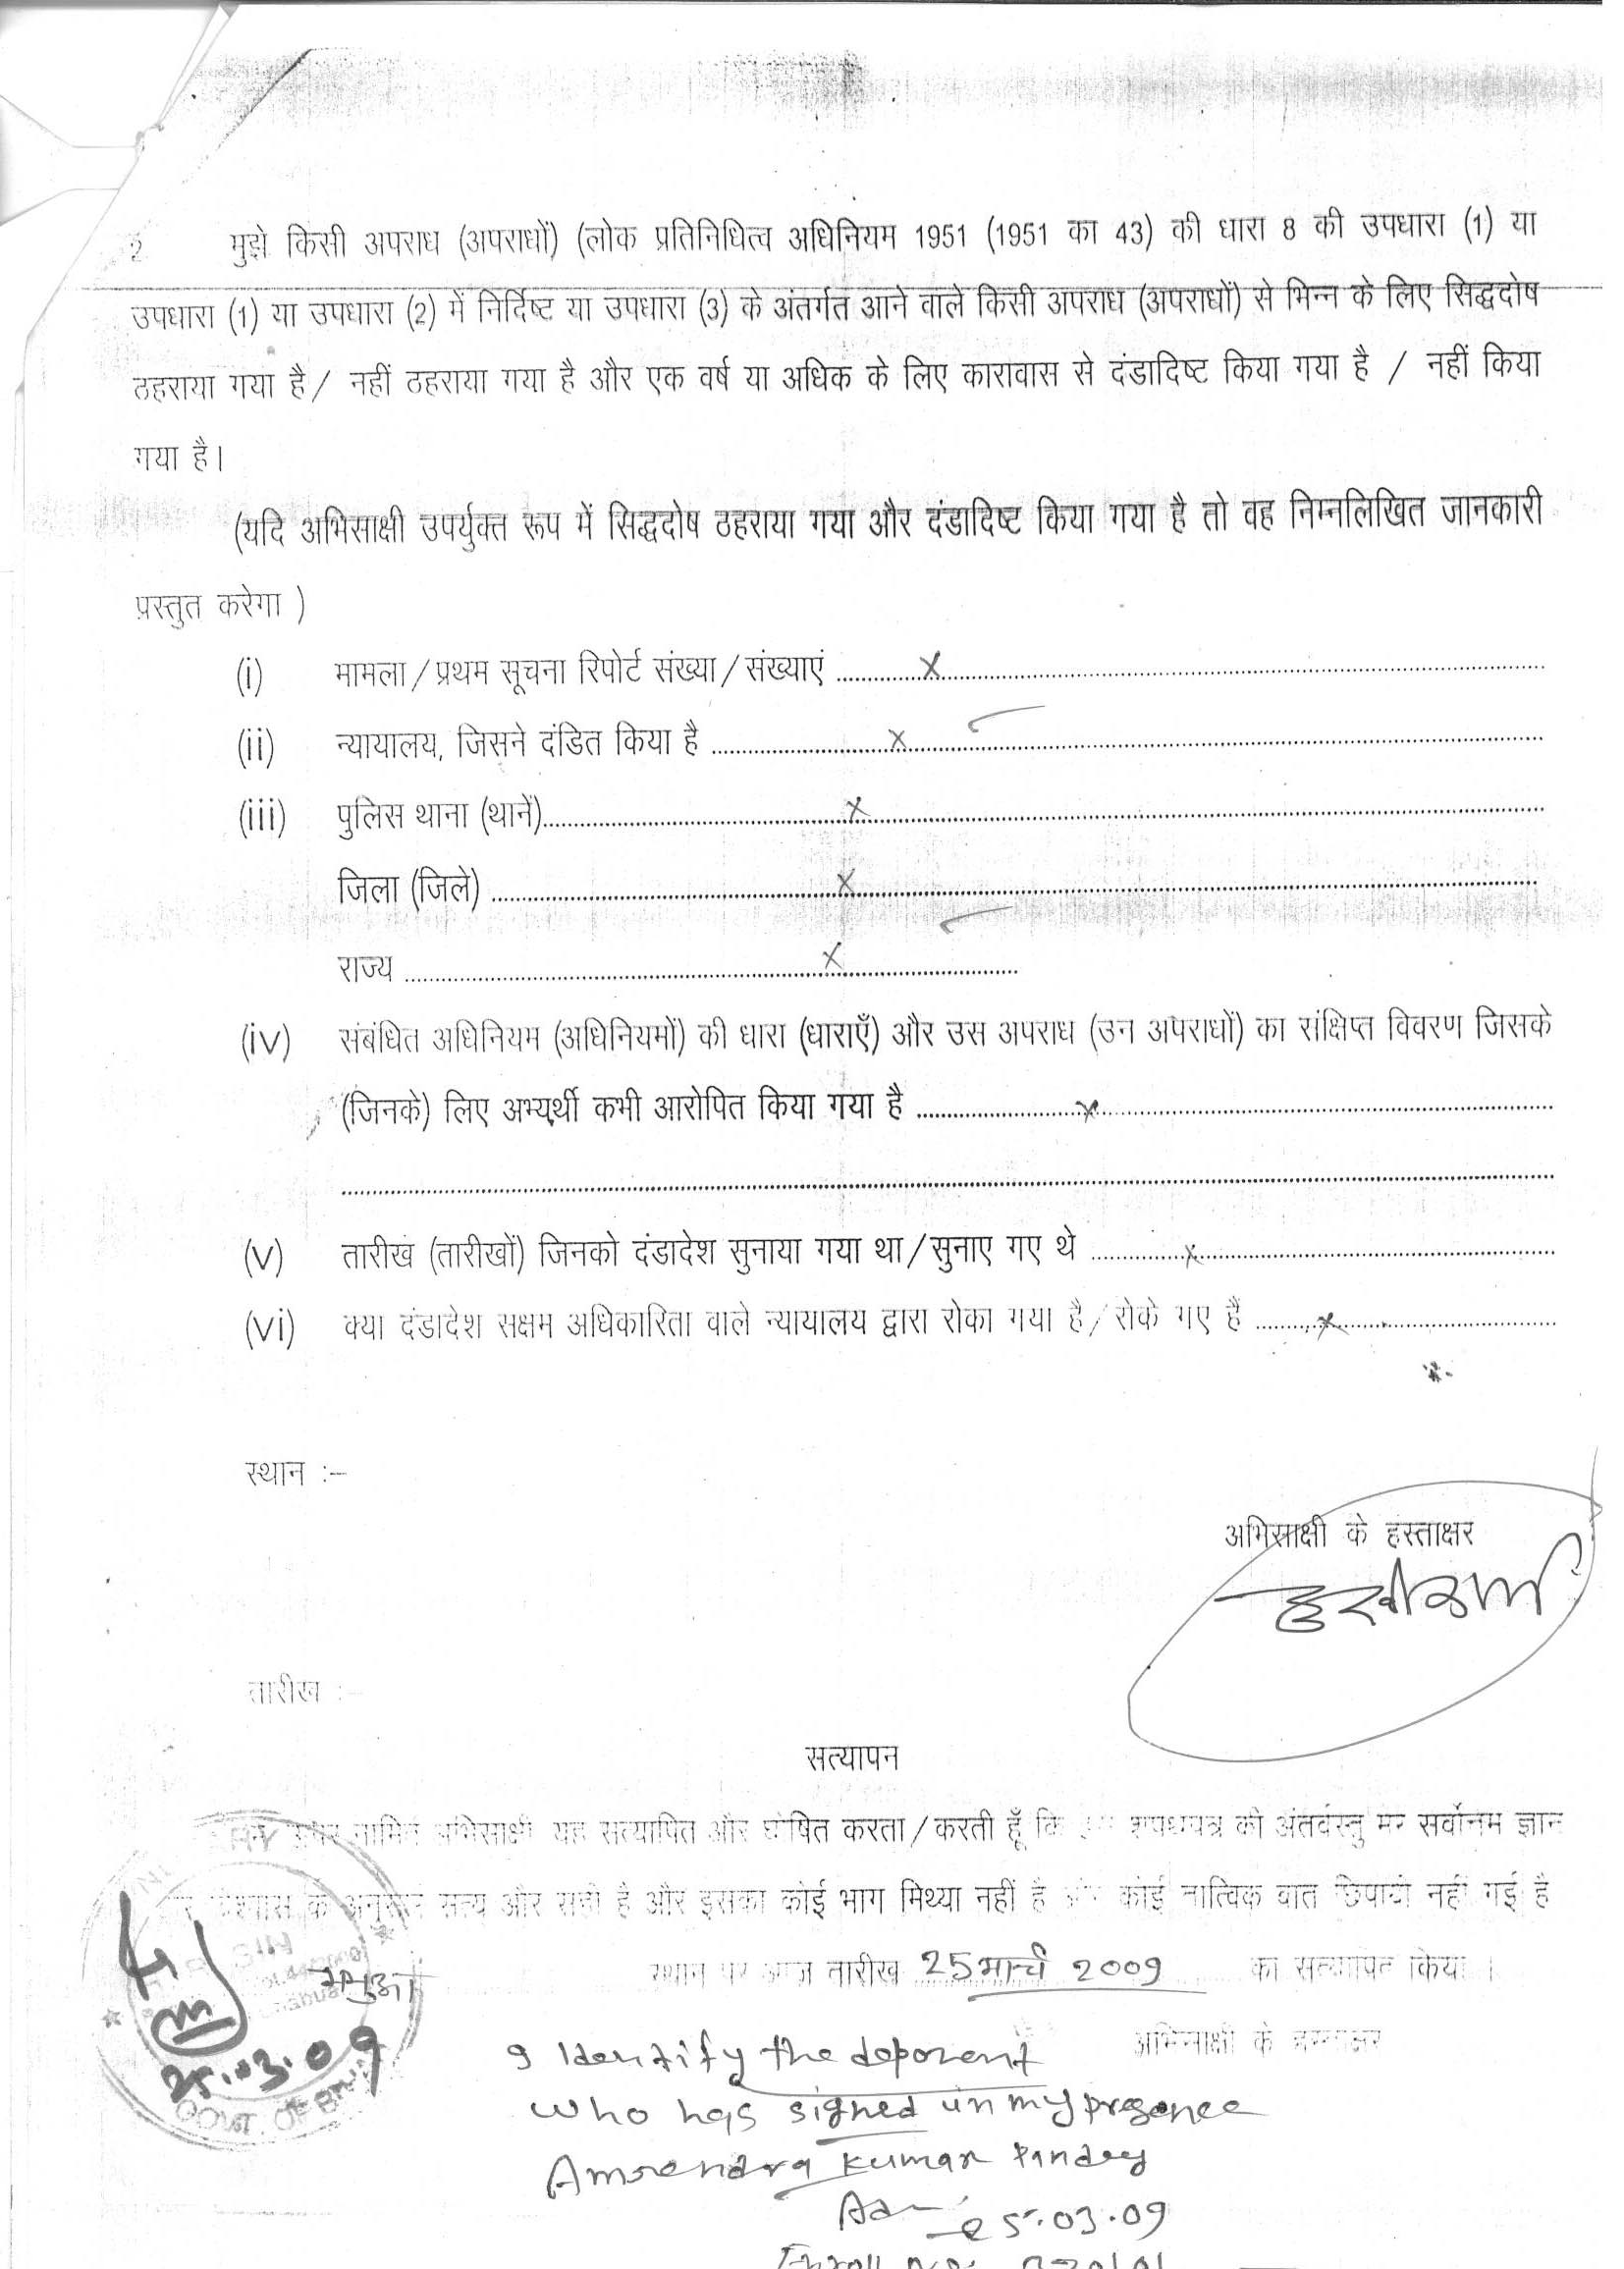 2 मुझे किसी अपराध (अपराधों) (लोक प्रतिनिधित्व अधिनियम 1951 (1951 का 43) की धारा 8 की उपधारा (1) या
उपधारा (1) या उपधारा (2) में निर्दिष्ट या उपधारा (3) के अंतर्गत आने वाले किसी अपराध (अपराधों) से भिन्न के लिए सिद्धदोष
ठहराया गया है / नहीं ठहराया गया है और एक वर्ष या अधिक के लिए कारावास से दंडादिष्ट किया गया है / नहीं किया
गया है।
(यदि अभिसाक्षी उपर्युक्त रूप में सिद्धदोष ठहराया गया और दंडादिष्ट किया गया है तो वह निम्नलिखित जानकारी
प्रस्तुत करेगा )
(i) मामला / प्रथम सूचना रिपोर्ट संख्या / संख्याएं ..........x..........
(ii) न्यायालय, जिसने दंडित किया है ..........x..........
(iii) पुलिस थाना (थानें)..........x..........
जिला (जिले) ..........x..........
राज्य ..........x..........
(iv) संबंधित अधिनियम (अधिनियमों) की धारा (धाराएँ) और उस अपराध (उन अपराधों) का संक्षिप्त विवरण जिसके
(जिनके) लिए अभ्यर्थी कभी आरोपित किया गया है ..........x..........
....................
(v) तारीख (तारीखों) जिनको दंडादेश सुनाया गया था / सुनाए गए थे ..........x..........
(vi) क्या दंडादेश सक्षम अधिकारिता वाले न्यायालय द्वारा रोका गया है / रोके गए हैं ..........x..........
स्थान :–
अभिसाक्षी के हस्ताक्षर
तारीख :–
सत्यापन
नामित अभिसाक्षी यह सत्यापित और घोषित करता / करती हूँ कि शपथपत्र की अंतर्वस्तु मेरे सर्वोनम ज्ञान
के अनुसार सत्य और सही है और इसका कोई भाग मिथ्या नहीं है और कोई तात्विक बात छिपायी नहीं गई है
स्थान पर आज तारीख 25 मार्च 2009 का सत्यापन किया ।
अभिसाक्षी के हस्ताक्षर
25.03.09
GOVT. OF
I Identify the deponent
who has signed in my presence
Amrendra Kumar Pandey
Adv
25.03.09
Enroll